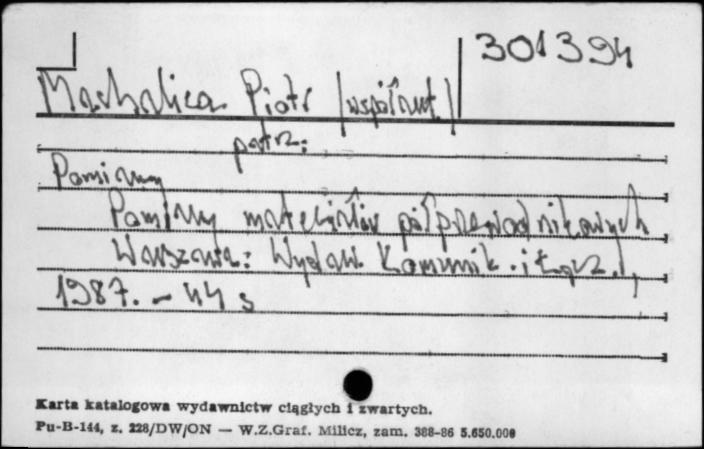 301394
Machalica Piotr (współaut.)
patrz:
Pomiary
Pomiary materiałów półprzewodnikowych
Warszawa: Wydaw. Komunik. i Łącz.,
1987. - 44 s
Karta katalogowa wydawnictw ciągłych i zwartych.
Pu-B-144, z. 228/DW/ON — W.Z.Graf. Milicz, zam. 388-86 5.650.000